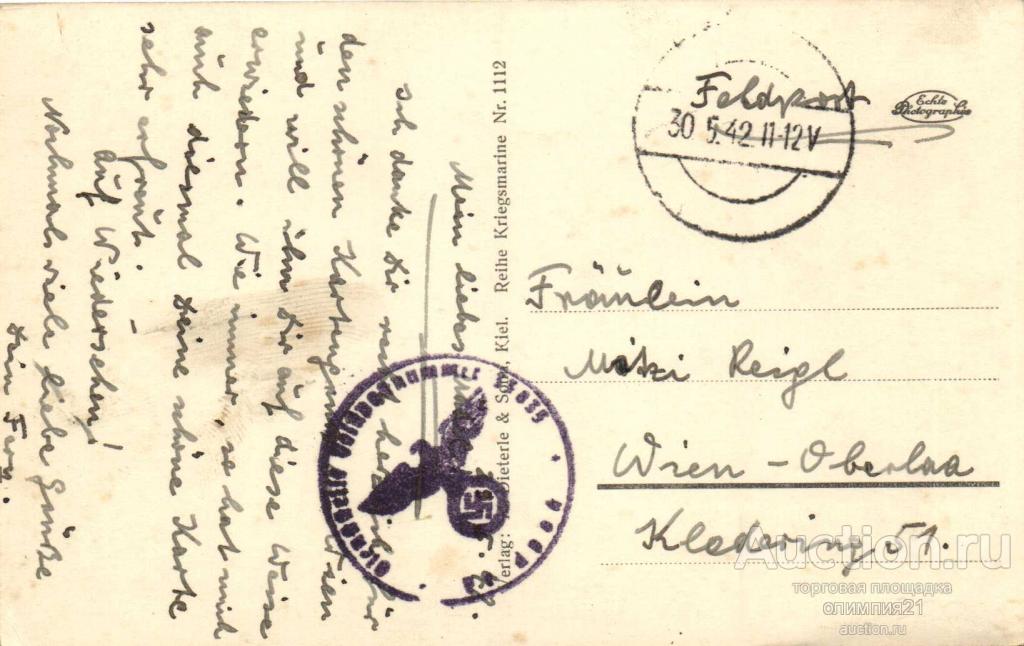 Mein liebes
Ich danke Dir recht herzlich für
den schönen Kartengruss Wien
und will ihn Dir auf diese Weise
erwiedern. Wie immer, so hat mich
auch diesmal Deine schöne Karte
sehr erfreut. –
Auf Wiedersehen!
Nochmals viele liebe Grüße
Dein
Verlag: & Sohn, Kiel. Reihe Kriegsmarine Nr. 1112
Echte
Photographie
Feldpost
30.5.42 11-12V
Fräulein
Mitzi Reigl
Wien – Oberlaa
Kledering 51.
Dienststelle Feldpostnummer
Auction.ru
торговая площадка
олимпия21
auction.ru